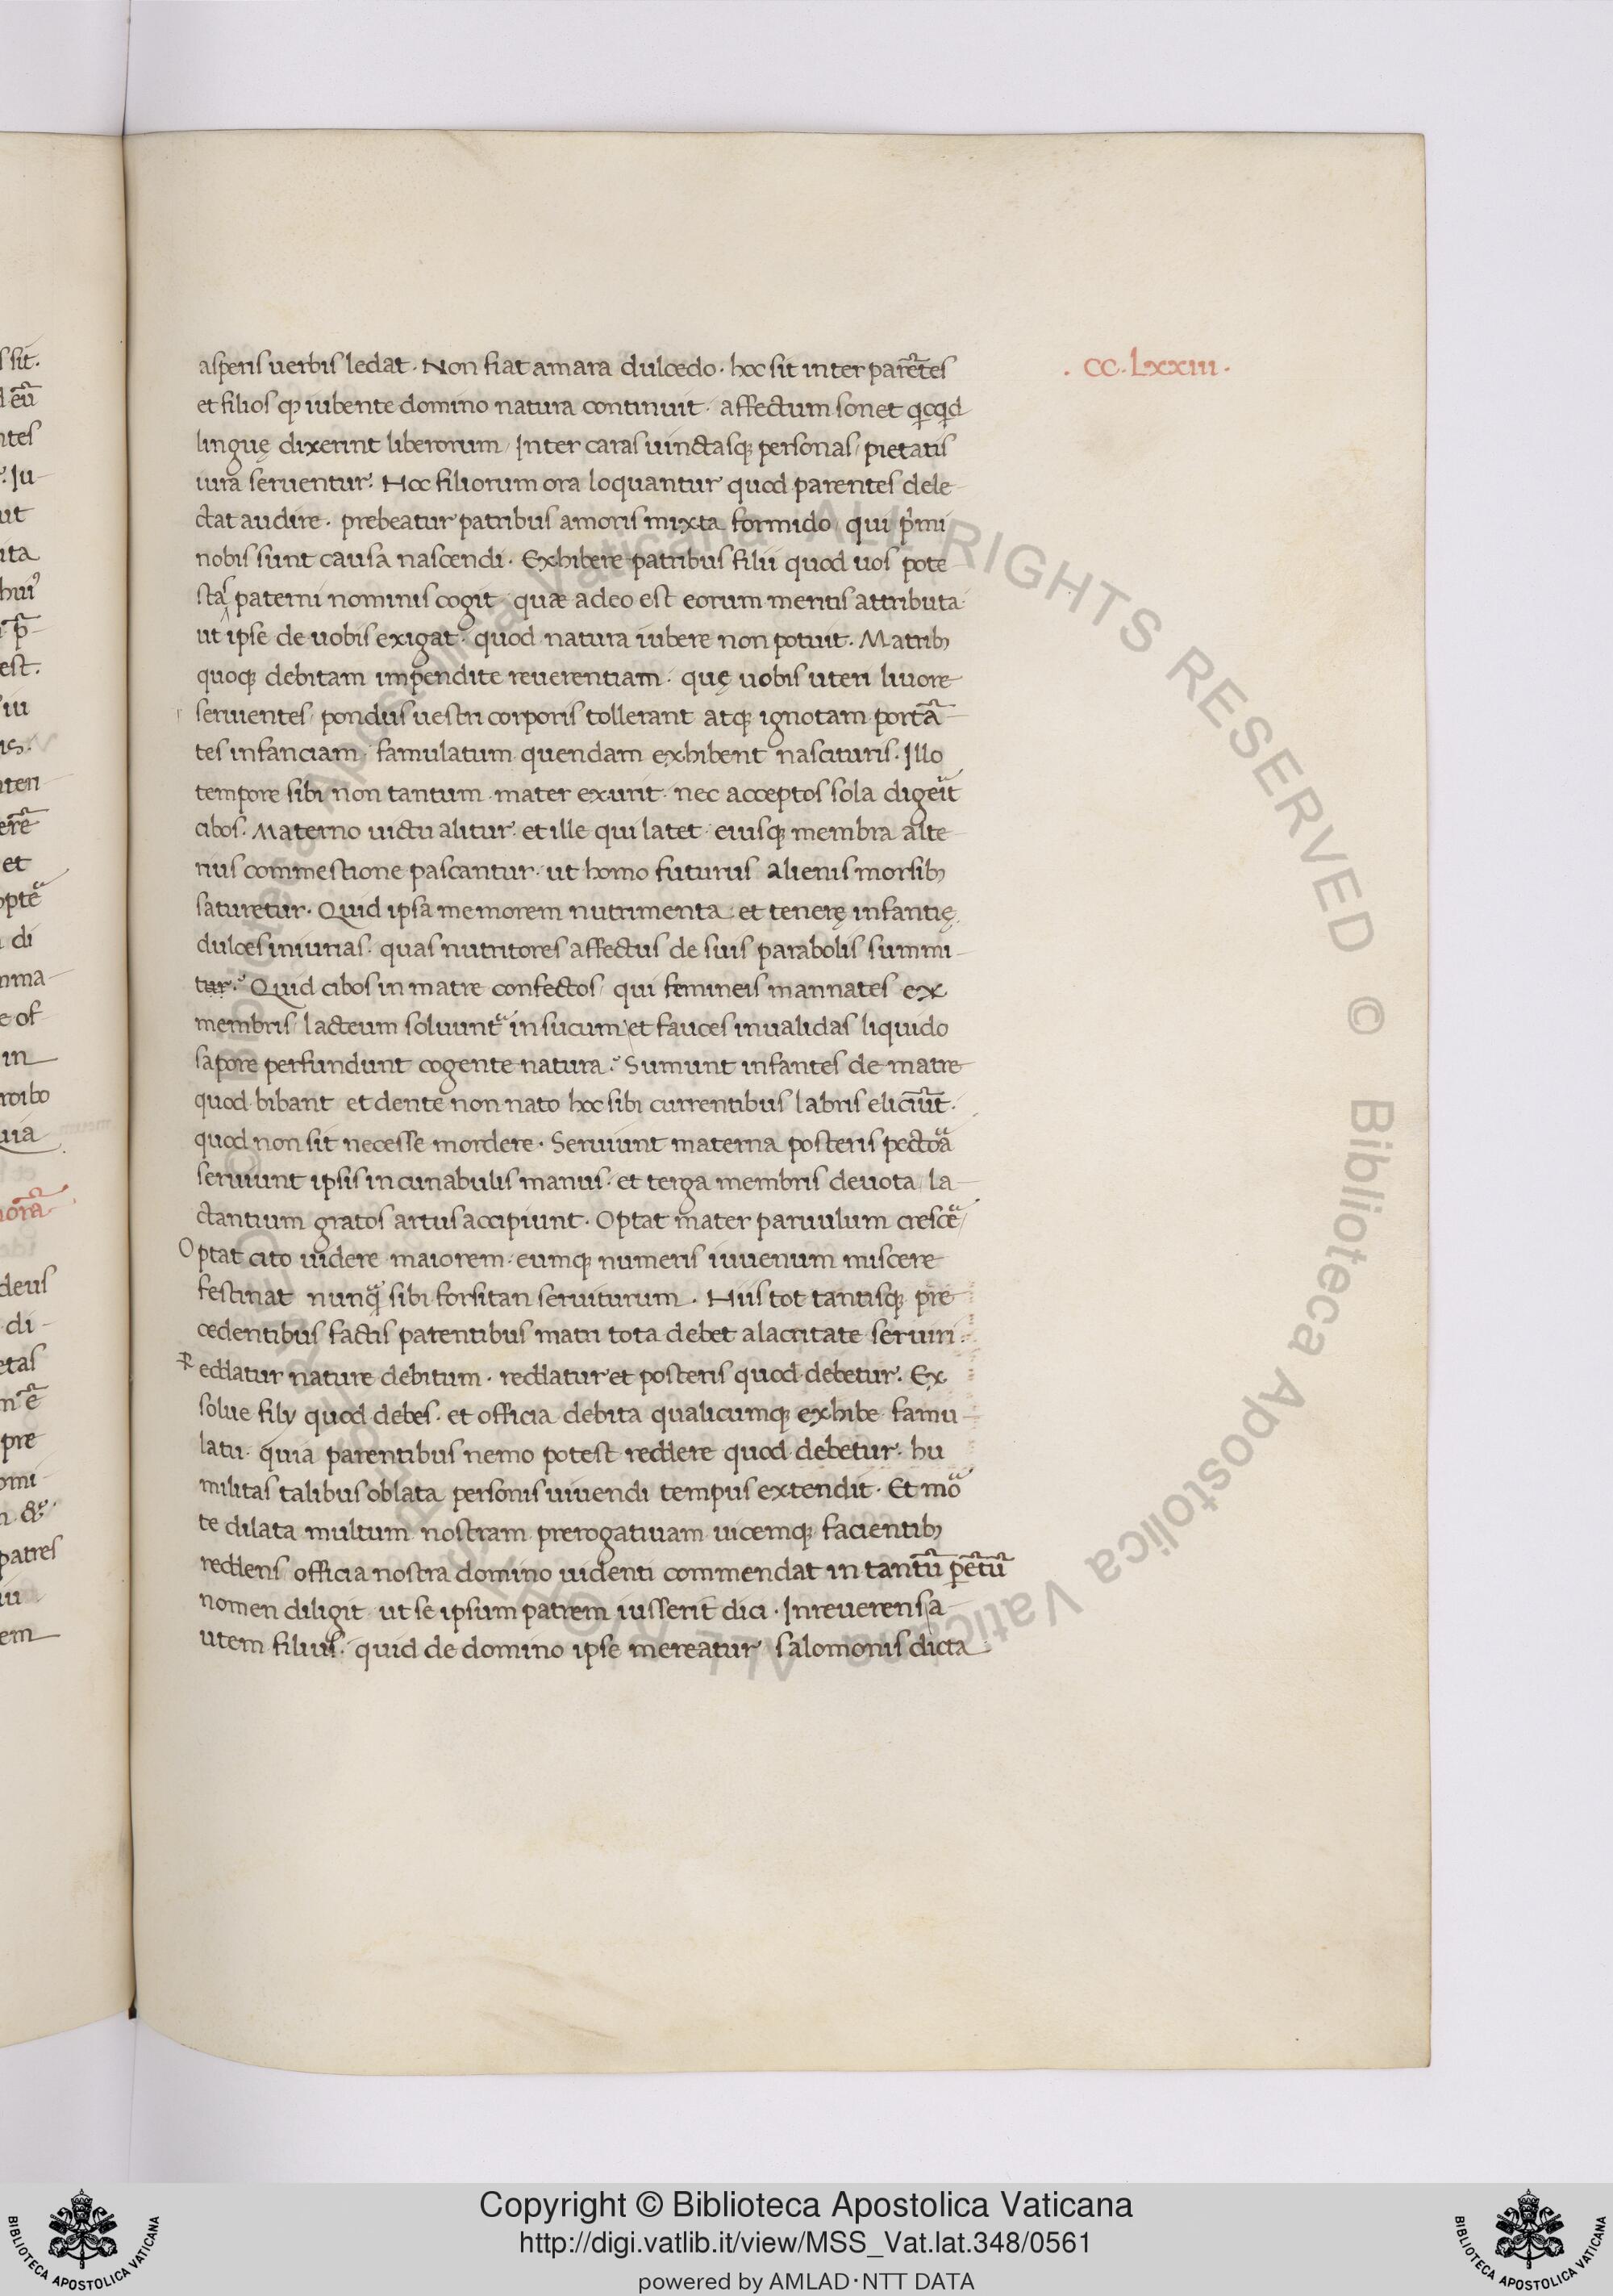 asperis uerbis ledat. Non fiat amara dulcedo. hoc sit inter parẽtes
. CC. Lxxiii.
et filios ꝙ iubente domino natura continuit. affectum sonet qͥcqͥd
linguę dixerint liberorum / Inter caras uinctasqꝫ personas / pietatis
iura seruentur. Hoc filiorum ora loquantur quod parentes dele-
ctat audire. prebeatur patribus amoris mixta formido / qui pͥmi
nobis sunt causa nascendi. Exhibere patribus filii quod uos pote-
stas paterni nominis cogit. quæ adeo est eorum meritis attributa.
ut ipse de uobis exigat. quod natura iubere non potuit. Matribꝫ
quoqꝫ debitam impendite reuerentiam. quę uobis uteri liuore
seruentes / pondus uestri corporis tollerant atqꝫ ignotam portã-
tes infanciam / famulatum quendam exhibent nascituris. Illo
tempore sibi non tantum mater exurit. nec acceptos sola digeͣit
cibos. Materno uictu alitur. et ille qui latet. eiusqꝫ membra alte-
rius commestione pascantur. ut homo futurus alienis morsibꝫ
saturetur. Quid ipsa memorem nutrimenta. et tenerę infantię
dulces iniurias. quas nutritores affectus de suis parabolis summi-
tur. Quid cibos in matre confectos / qui femineis mannates ex
membris / lacteum soluuntͣ in sucum et fauces inualidas liquido
sapore perfundunt cogente natura. Sumunt infantes de matre
quod bibant et dente non nato hoc sibi currentibus labris eliciũt.
quod non sit necesse mordere. Seruiunt materna posteris pectoͣa
seruiunt ipsis in cunabulis manus. et terga membris deuota / la-
ctantium gratos artus accipiunt. Optat mater paruulum cresceͣ /
Optat cito uidere maiorem. eumqꝫ numeris iuuenum miscere
festinat nunqͣ sibi forsitan seruiturum. Hiis tot tantisqꝫ pre-
cedentibus factis parentibus matri tota debet alacritate seruiri.
Reddatur nature debitum. reddatur et posteris quod debetur. Ex-
solue fily quod debes. et officia debita qualicumqꝫ exhibe famu-
latu. quia parentibus nemo potest reddere quod debetur. hu
militas talibus oblata personis uiuendi tempus extendit. Et moͣ
te dilata multum nostram prerogatiuam uicemqꝫ facientibꝫ
reddens officia nostra domino uidenti commendat in tantũ p̲ẽtũ
nomen diligit ut se ipsum patrem iusserit dici. Inreuerens a-
utem filius. quid de domino ipse mereatur salomonis dicta